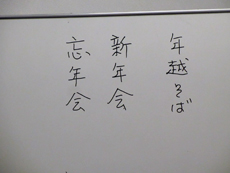 年越そば
新年会
忘年会